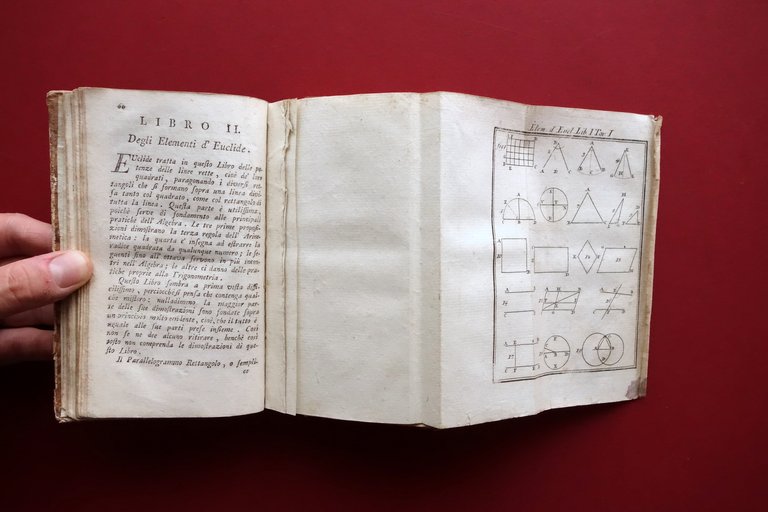 60
LIBRO II.
Degli Elementi d' Euclide.
EUclide tratta in questo Libro delle po-
tenze delle linee rette, cioè de' loro
quadrati, paragonando i diversi ret-
tangoli che si formano sopra una linea divi-
sa tanto col quadrato, come col rettangolo di
tutta la linea. Questa parte è utilissima,
poichè serve di fondamento alle principali
pratiche dell' Algebra. Le tre prime proposi-
zioni dimostrano la terza regola dell' Arit-
metica: la quarta c' insegna ad estrarre la
radice quadrata da qualunque numero; le se-
guenti fino all' ottava servono in più incon-
tri nell' Algebra; le altre ci danno delle pra-
tiche proprie alla Trigonometria.
Questo Libro sembra a prima vista diffi-
cilissimo, perciocchè si pensa che contenga qual-
che mistero: nulladimeno la maggior par-
te delle sue dimostrazioni sono fondate sopra
un principio molto evidente, cioè, che il tutto è
eguale alle sue parti prese insieme. Così
non se ne dee alcuno ritirare, benchè così
tosto non comprenda le dimostrazioni di que-
sto Libro.
Il Parallelogrammo Rettangolo, o sempli-
ce
Elem. d' Eucl. Lib. I Tav. I